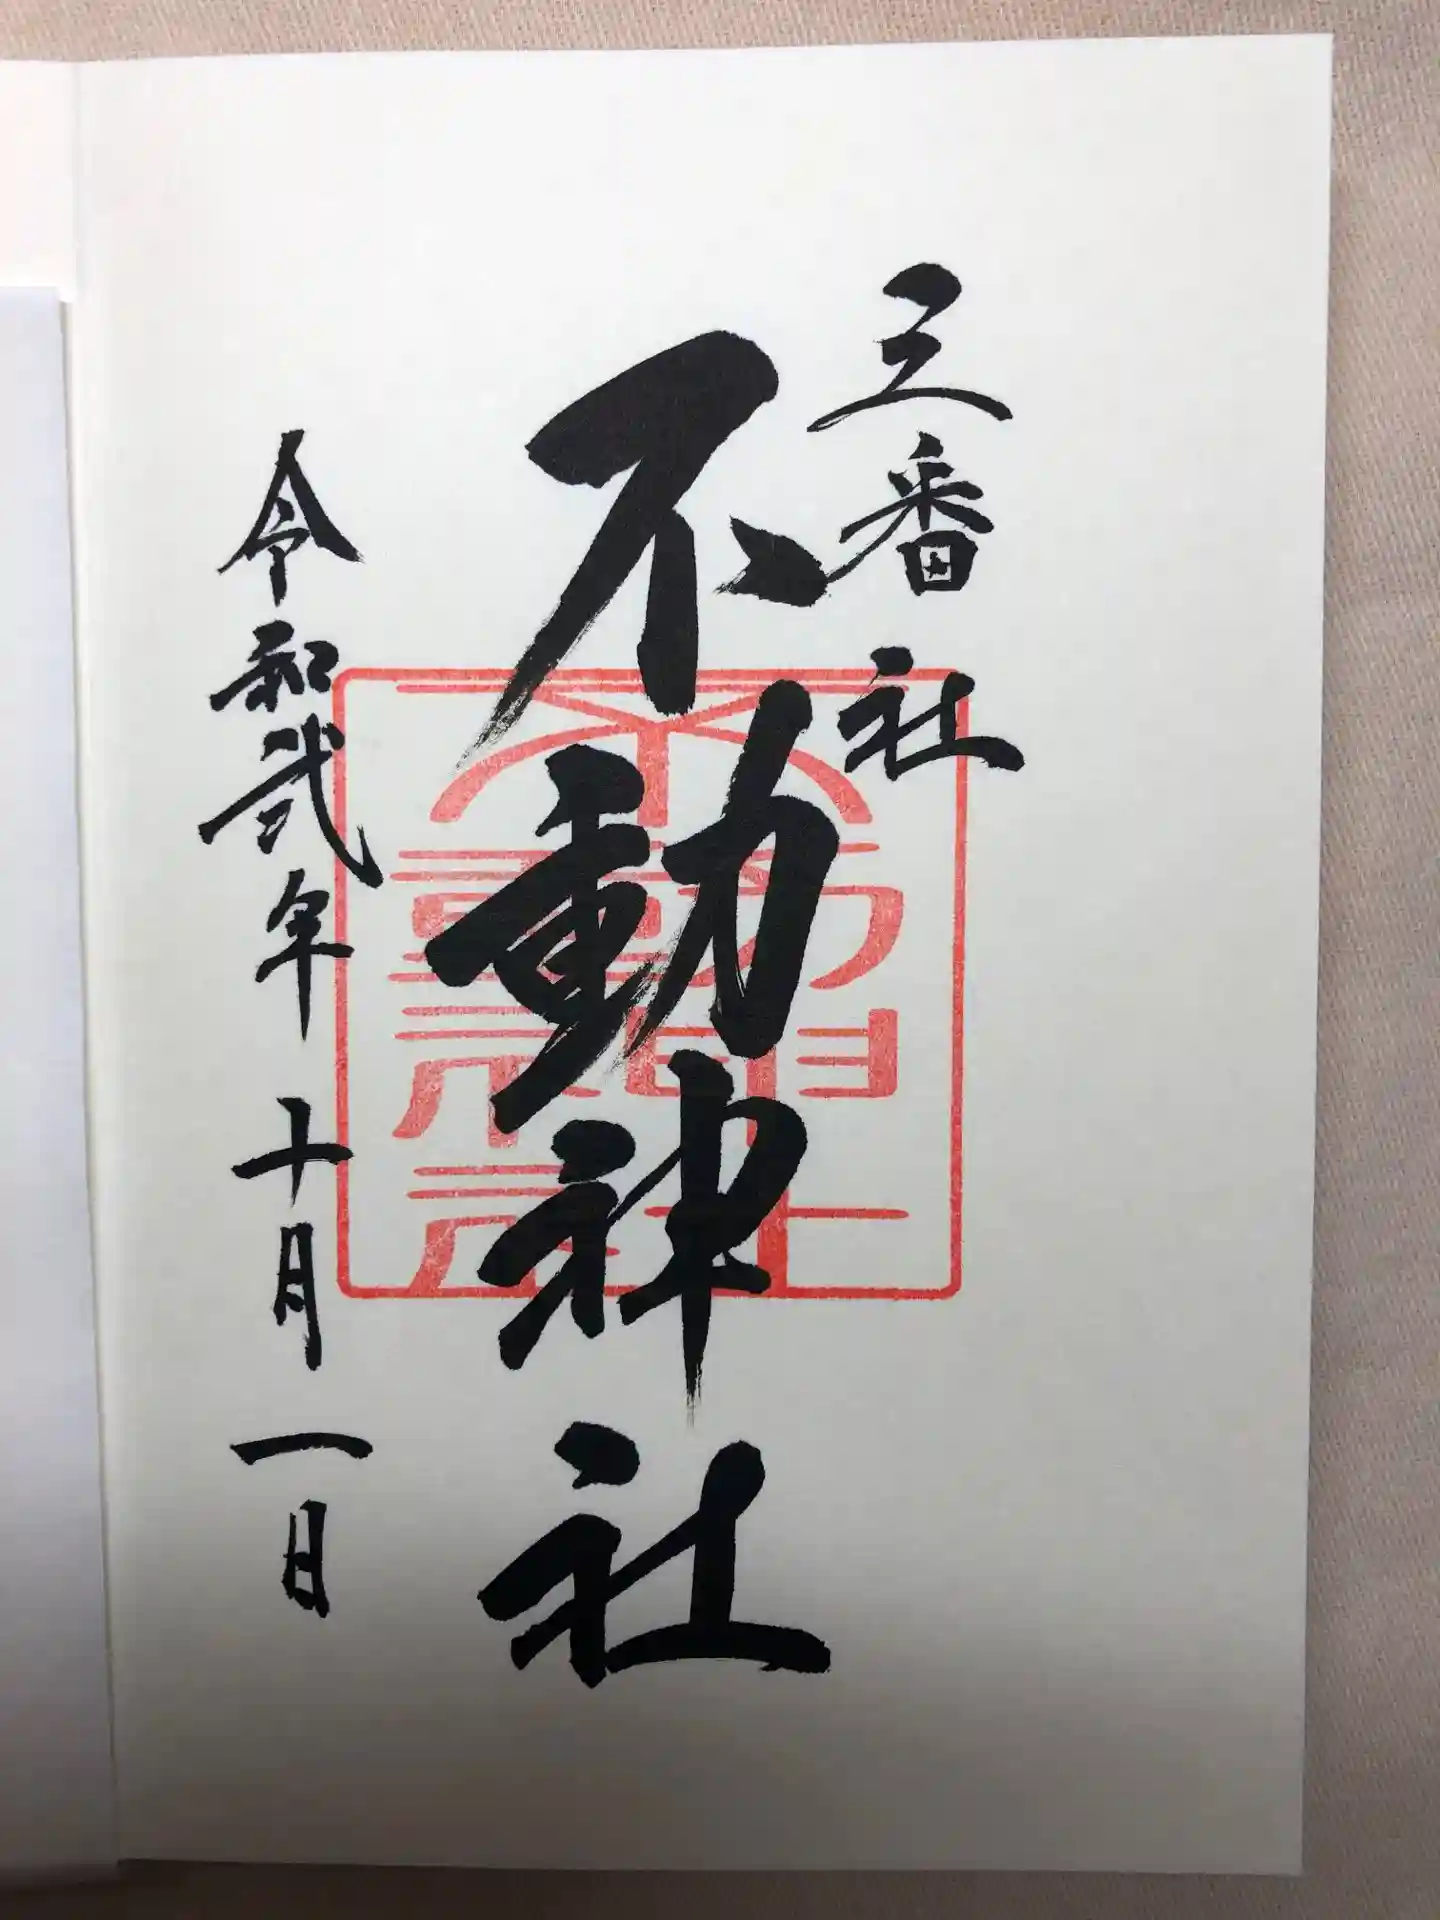 三番社
不動神社
令和弐年十月一日
不動神社